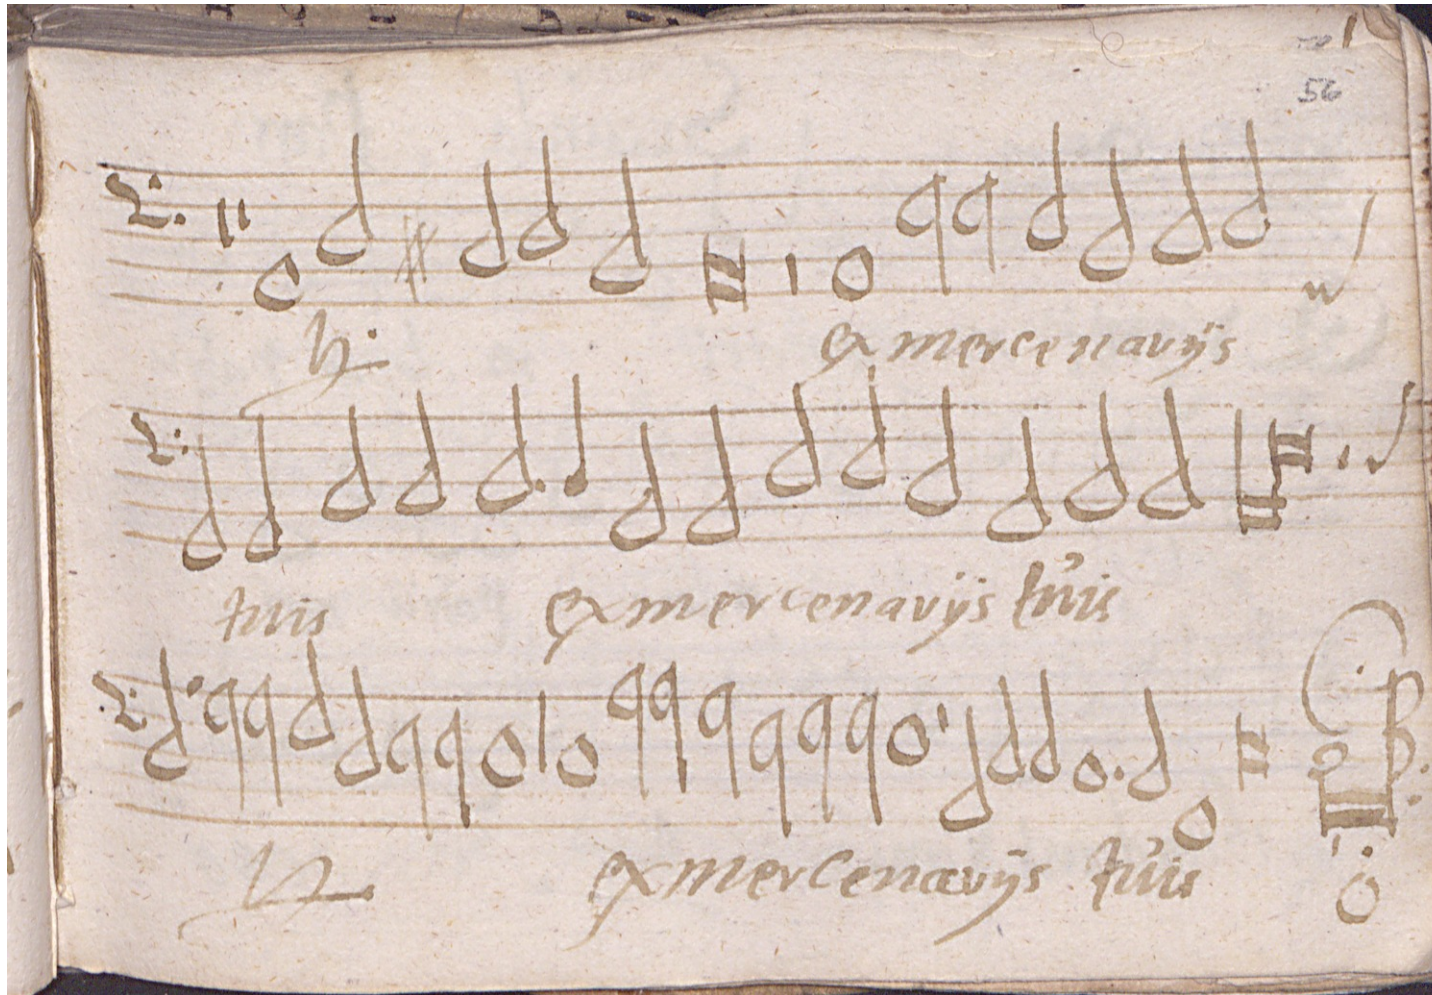 56
ex mercenarijs
tuis
ex mercenarijs tuis
ex mercenarijs tuis